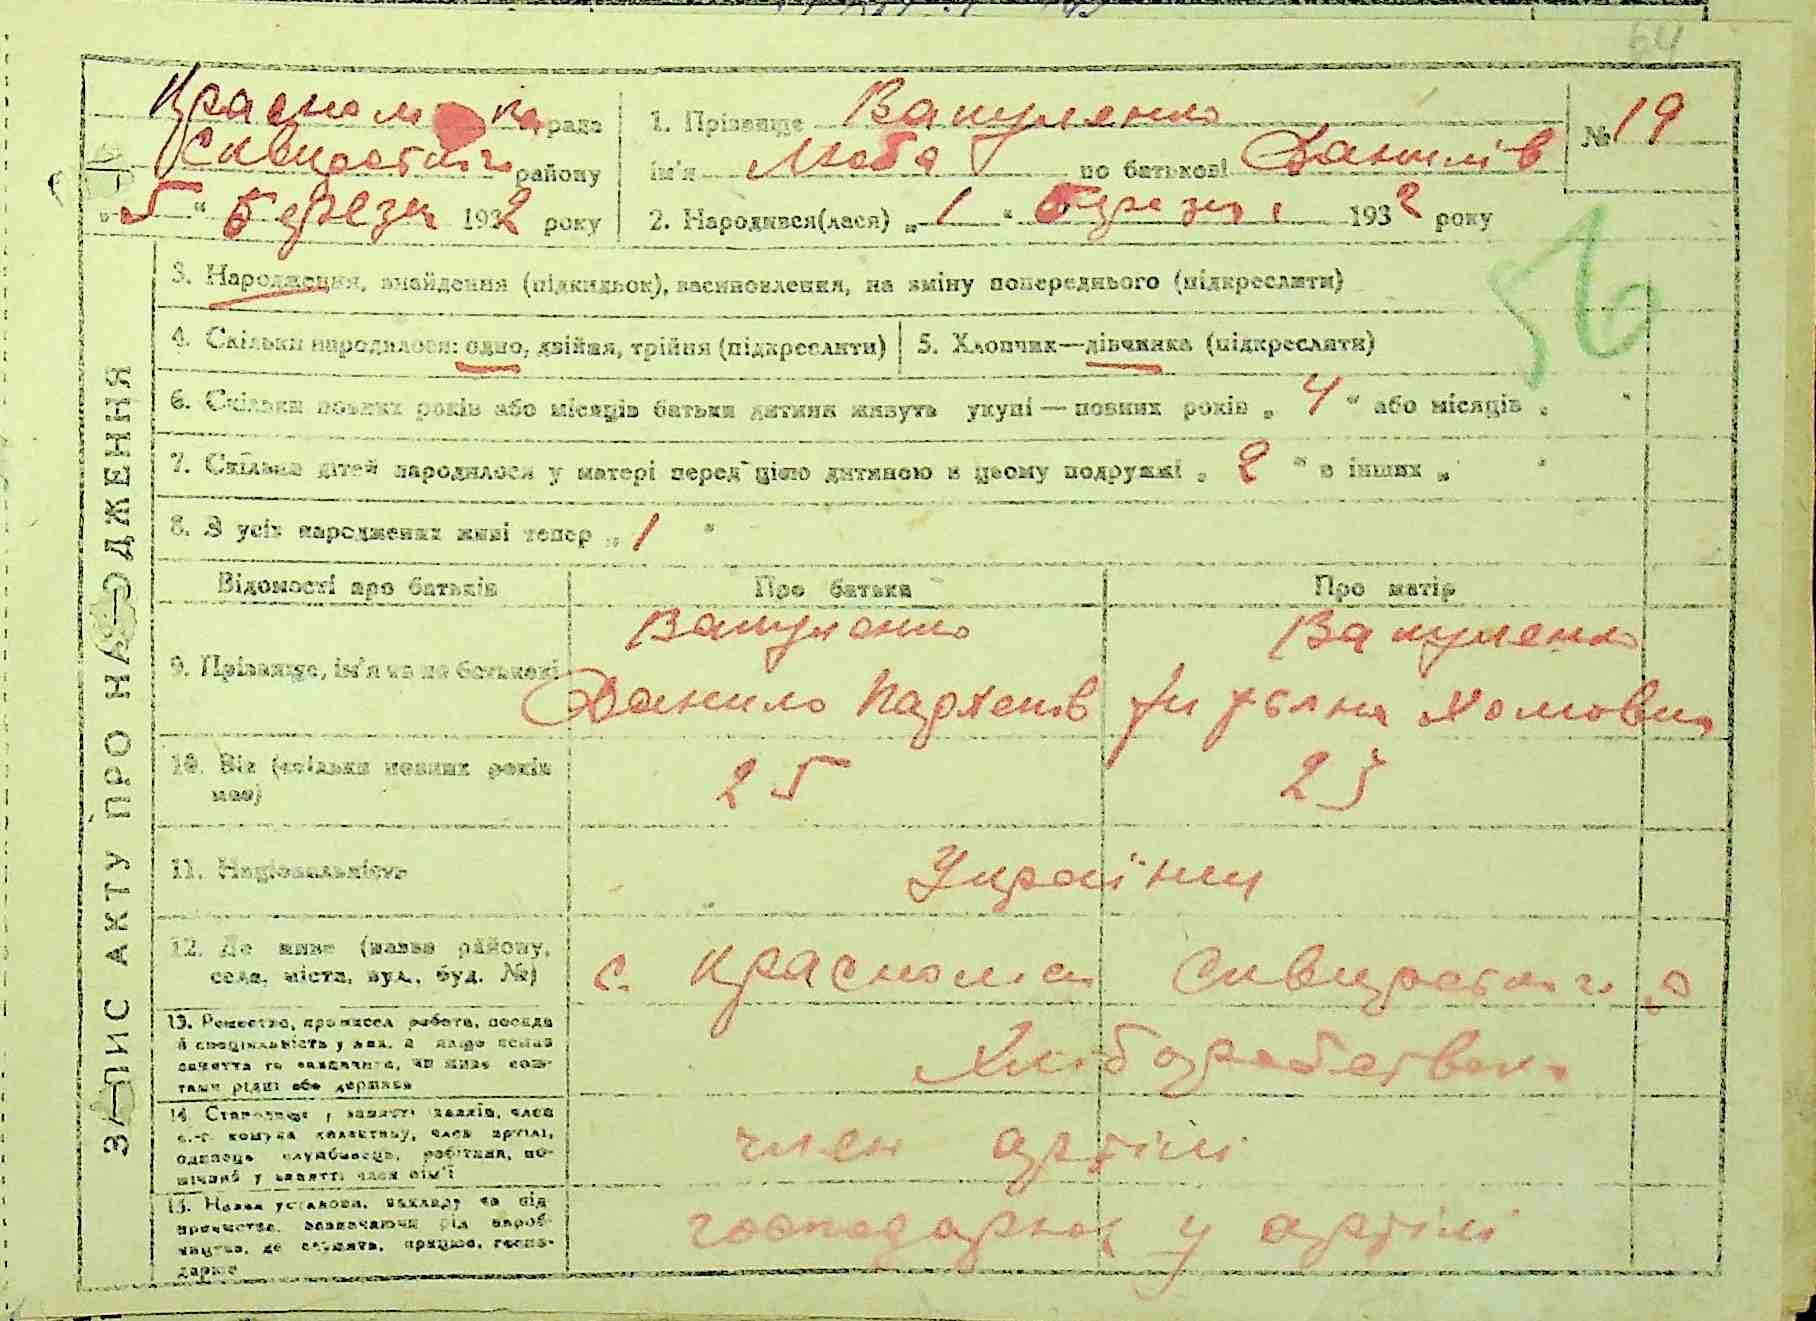 64
рада
1. Прізвище Вакуленко
№ 19
Сквирського району
ім'я Люба по батькові Данилів
„5“ березня 1932 року
2. Народився(лася) „1“ березня 1932 року
56
3. Народження, знайдення (підкидьок), засиновлення, на зміну попереднього (підкреслити)
4. Скільки народилося: одно, двійня, трійня (підкреслити)
5. Хлопчик—дівчинка (підкреслити)
6. Скільки повних років або місяців батьки дитини живуть укупі — повних років „4“ або місяців „ “
7. Скільки дітей народилося у матері перед цією дитиною в цьому подружжі „2“ в інших „ “
8. З усіх народжених живі тепер „1“
ЗАПИС АКТУ ПРО НАРОДЖЕННЯ
Відомості про батьків
Про батька
Про матір
9. Прізвище, ім'я та по батькові
Вакуленко
Данило Пархомів
Вакуленко
Хомовна
10. Вік (скільки повних років
має)
25
25
11. Національність
Українці
12. Де живе (назва району,
села, міста, вул., буд. №)
с. Красноліси Сквирського р
13. Ремество, промисел робота, посада
й спеціяльність у них, а якщо немає
заняття то зазначити, чи живе кош-
тами рідні або держави
Хліборобство
14. Становище у занятті: хазяїн, член
с.-г. комуни колективу, член артілі,
одинець службовець, робітник, по-
мічний у занятті член сім'ї
член артілі
15. Назва установи, закладу чи під-
приємства, зазначаючи рід вироб-
ництва, де служить, працює, госпо-
дарює
господарює у артілі